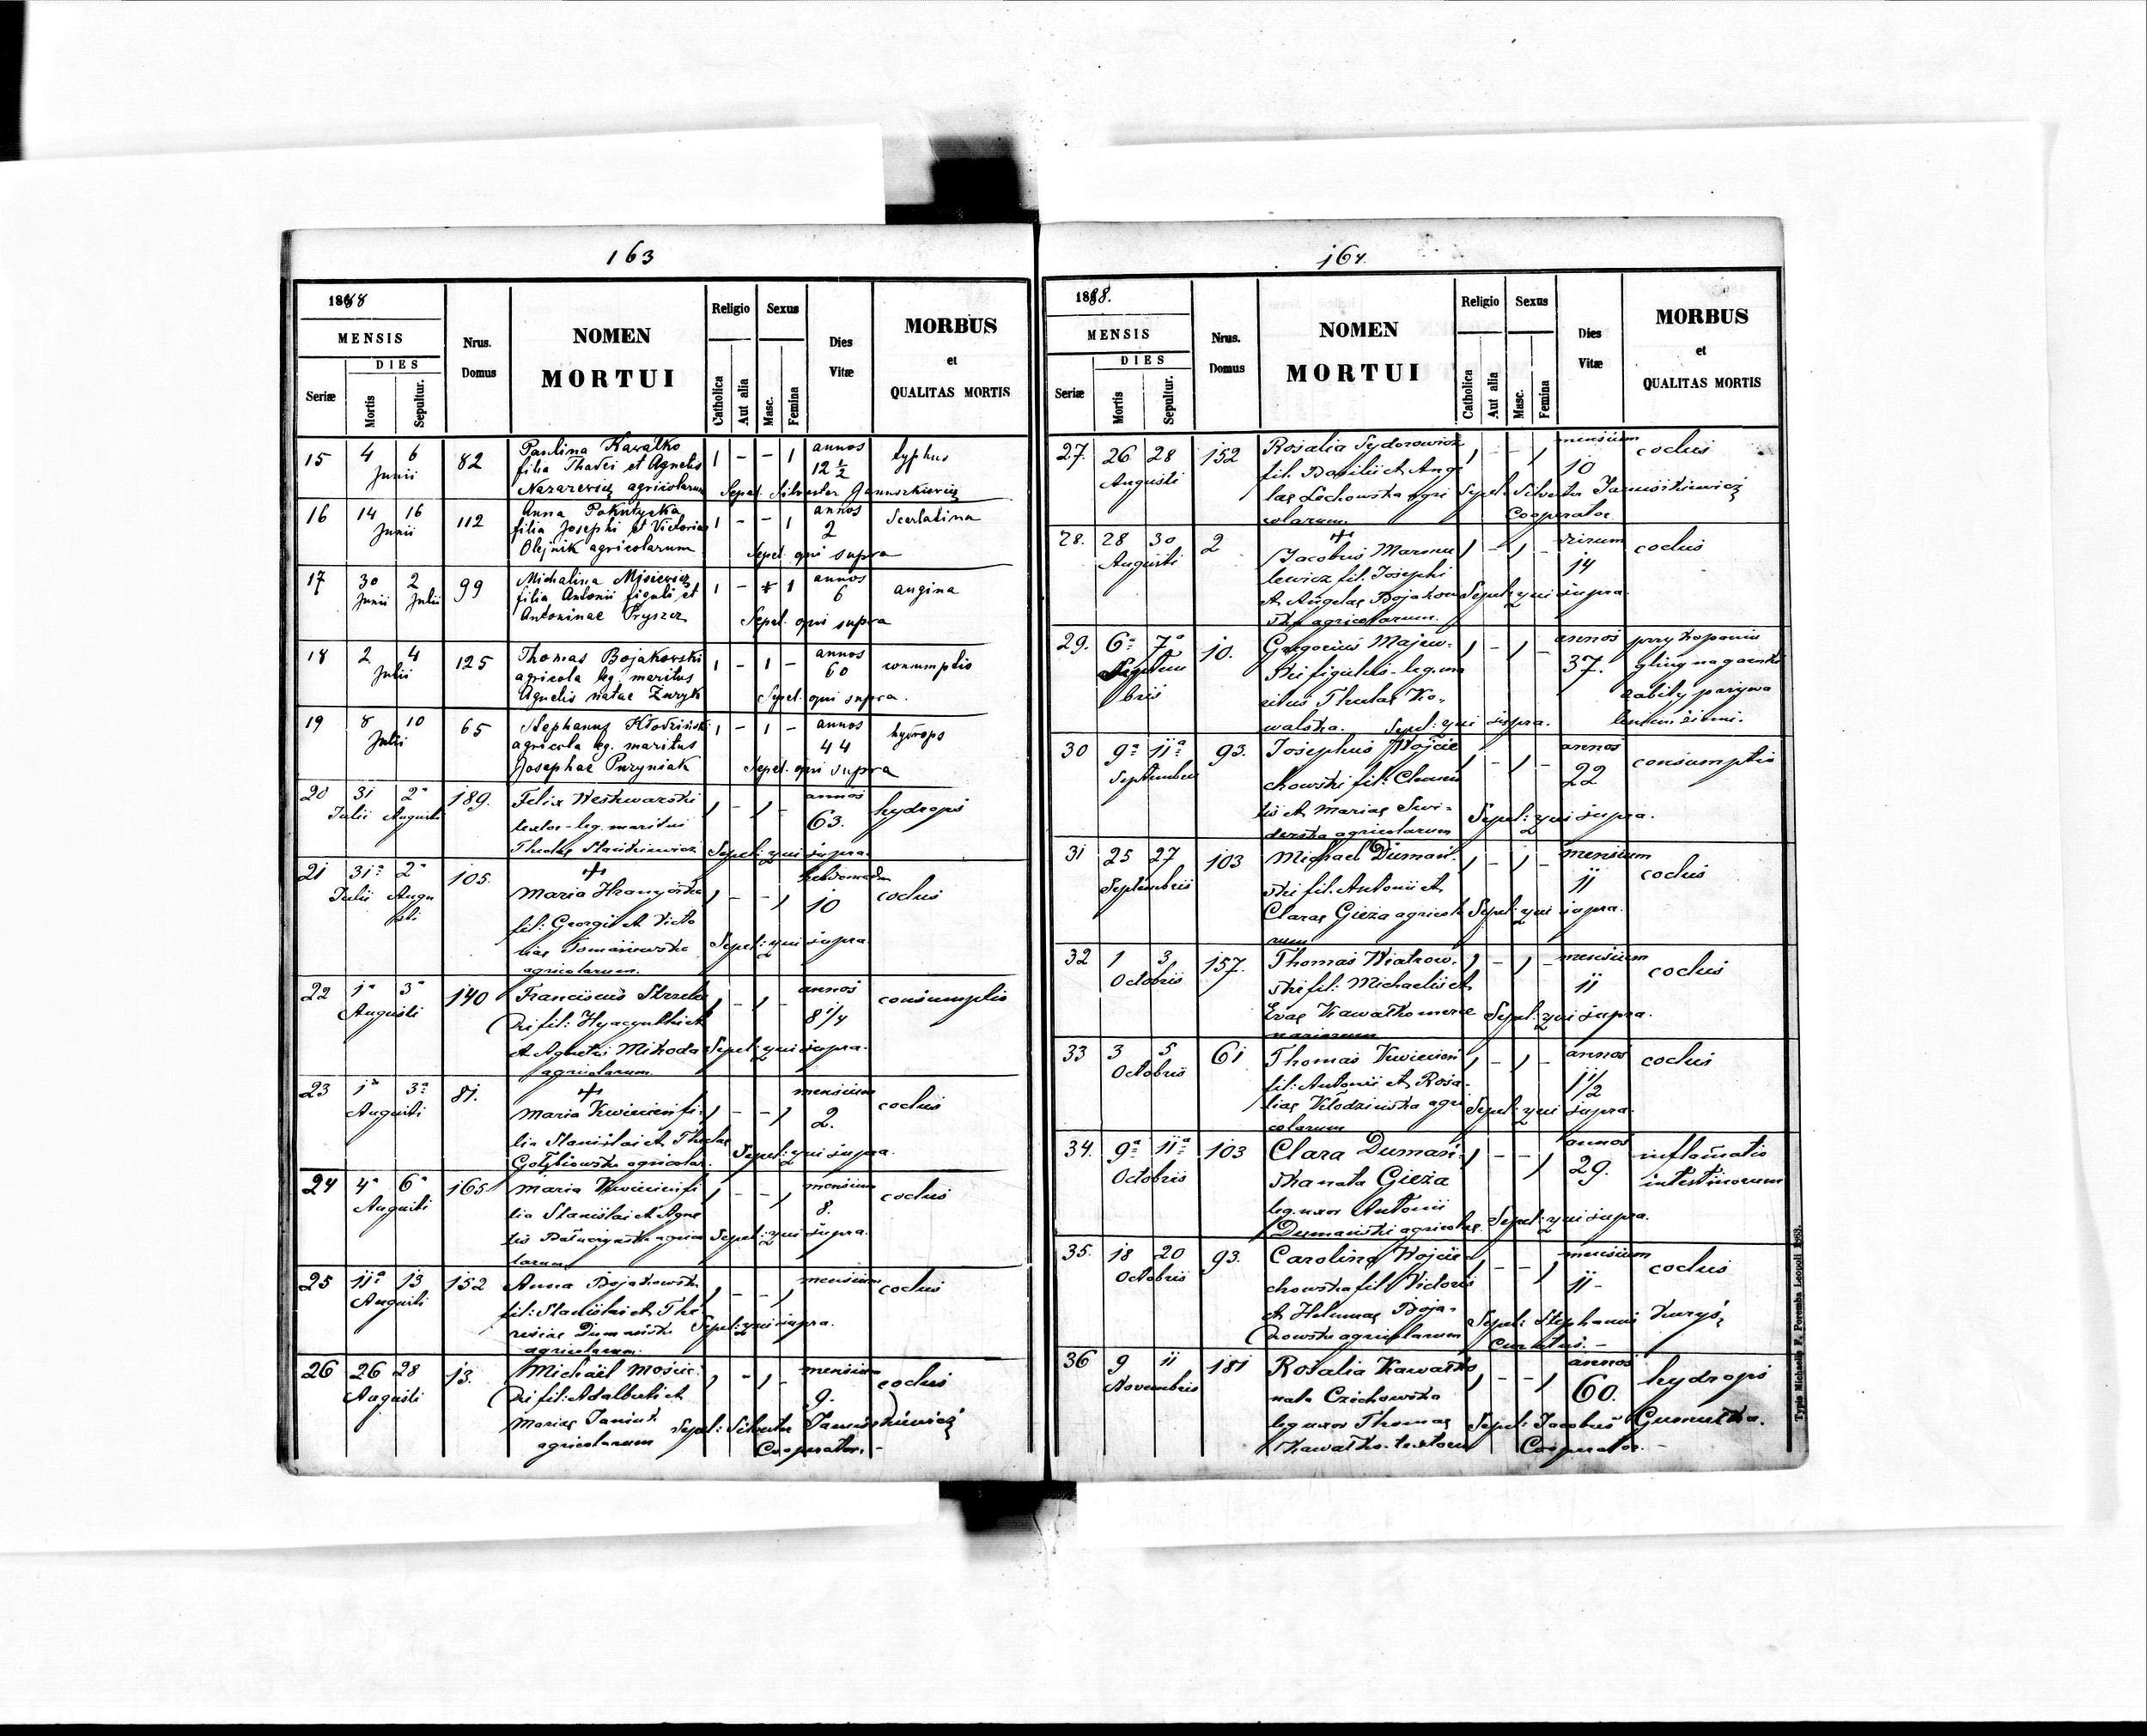 163
1888
MENSIS
DIES
Seriæ
Mortis
Sepultur.
Nrus.
Domus
NOMEN
MORTUI
Religio
Catholica
Aut alia
Sexus
Masc.
Femina
Dies
Vitæ
MORBUS
et
QUALITAS MORTIS
15 4 6 Junii 82
Paulina Kawałko
filia Thadei et Agnetis
Nazarewicz agricolarum
1 - - 1 annos 12 1/2 typhus
Sepel. Silvester Januszkiewicz
16 14 16 Junii 112
Anna Pokutycka
filia Josephi et Victoriae
Olejnik agricolarum
1 - - 1 annos 2 Scarlatina
Sepel. qui supra
17 30 Junii 2 Julii 99
Michalina Misiewicz
filia Antonii figuli et
Antoninae Pryszcz
1 - 1 annos 6 angina
Sepel. qui supra
18 2 4 Julii 125
Thomas Bojakowski
agricola leg. maritus
Agnetis natae Zuzyk
1 - 1 - annos 60 consumptio
Sepel. qui supra.
19 8 10 Julii 65
Stephanus Kłodziński
agricola leg. maritus
Josephae Puzyniak
1 - 1 - annos 44 hydrops
Sepel. qui supra
20 31 Julii 2a Augusti 189.
Felix
textor - leg. maritus
Theclae
1 - 1 - annos 63. hydrops
Sepel: qui supra.
21 31a Julii 2a Augusti 105.
Maria
fil: Georgii et Victo
riae
agricolarum.
1 - - 1 10 coclus
Sepel: qui supra
22 1a 3a Augusti 140
Franciscus
fil: Hyacynthi et
et Agnetis Mikoda
agricolarum.
1 - 1 - annos 8 1/4 consumptio
Sepel: qui supra.
23 1a 3a Augusti 81.
Maria Kwiecień fi-
lia Stanislai et Theclae
Gołębiowska agricolar.
1 - - 1 mensium 2. coclus
Sepel: qui supra.
24 4a 6a Augusti 165
Maria Kwiecień fi
lia Stanislai et Agne
tis
larum
1 - - 1 mensium 8. coclus
Sepel: qui supra.
25 11a 13 Augusti 152
Anna Bojakowska
fil: Stanislai et The-
resiae Dumańska
agricolarum.
1 - - 1 mensium coclus
Sepel: qui supra.
26 26 28 Augusti 13.
Michael
fil: Adalberti et
Mariae
agricolarum
1 - 1 - mensium 9. coclus
Sepel: Silvester Januszkiewicz
Cooperator. -
164.
1888.
MENSIS
DIES
Seriæ
Mortis
Sepultur.
Nrus.
Domus
NOMEN
MORTUI
Religio
Catholica
Aut alia
Sexus
Masc.
Femina
Dies
Vitæ
MORBUS
et
QUALITAS MORTIS
27. 26 28 Augusti 152
Rosalia Sydorowicz
fil. Basilii et Ange
lae Lechowska agri
colarum
1 - - 1 mensium 10 coclus
Sepel: Silvester Januszkiewicz
Cooperator
28. 28 30 Augusti 2
Jacobus Marmu
lewicz fil. Josephi
et Angelae Bojakow
ska agricolarum.
1 - 1 - dierum 14 coclus
Sepel: qui supra
29. 6a 7a Septem
bris 10.
Gregorius Majew-
ski figulus - leg. ma
ritus Theclae Ko-
walska.
1 - 1 - annos 37.
przy kopaniu
gliny na garnki
zabity przywa
leniem ziemi.
Sepel: qui supra.
30 9a 11a Septembris 93.
Josephus Wojcie
chowski fil: Clemen
tis et Mariae Świ-
derska agricolarum
1 - 1 - annos 22 consumptio
Sepel: qui supra.
31 25 27 Septembris 103
Michael Dumań-
ski fil. Antonii et
Clarae Gieża agricola
rum
1 - 1 - mensium 11 coclus
Sepel: qui supra.
32 1 3 Octobris 157.
Thomas Wiatrow-
ski fil: Michaelis et
Evae Kawałko merce
nariorum
1 - 1 - mensium 11 coclus
Sepel: qui supra.
33 3 5 Octobris 61
Thomas Kwiecień
fil: Antonii et Rosa-
liae Kłodzińska agri
colarum
1 - 1 - annos 1 1/2 coclus
Sepel: qui supra.
34. 9a 11a Octobris 103
Clara Dumań-
ska nata Gieża
leg. uxor Antonii
Dumański agricolae.
1 - - 1 annos 29. inflamatio
intestinorum
Sepel: qui supra.
35. 18 20 Octobris 93.
Carolina Wojcie-
chowska fil Victoris
et Helenae Boja-
kowska agricolarum
1 - - 1 mensium 11 - coclus
Sepel: Stephanus
Curatus. -
36 9 11 Novembris 181
Rosalia Kawałko
nata Czechowska
leg uxor Thomae
Kawałko - textoris
1 - - 1 annos 60. hydrops
Sepel: Jacobus
Cooperator. -
Typis Michaelis F. Poremba Leopoli 1863.